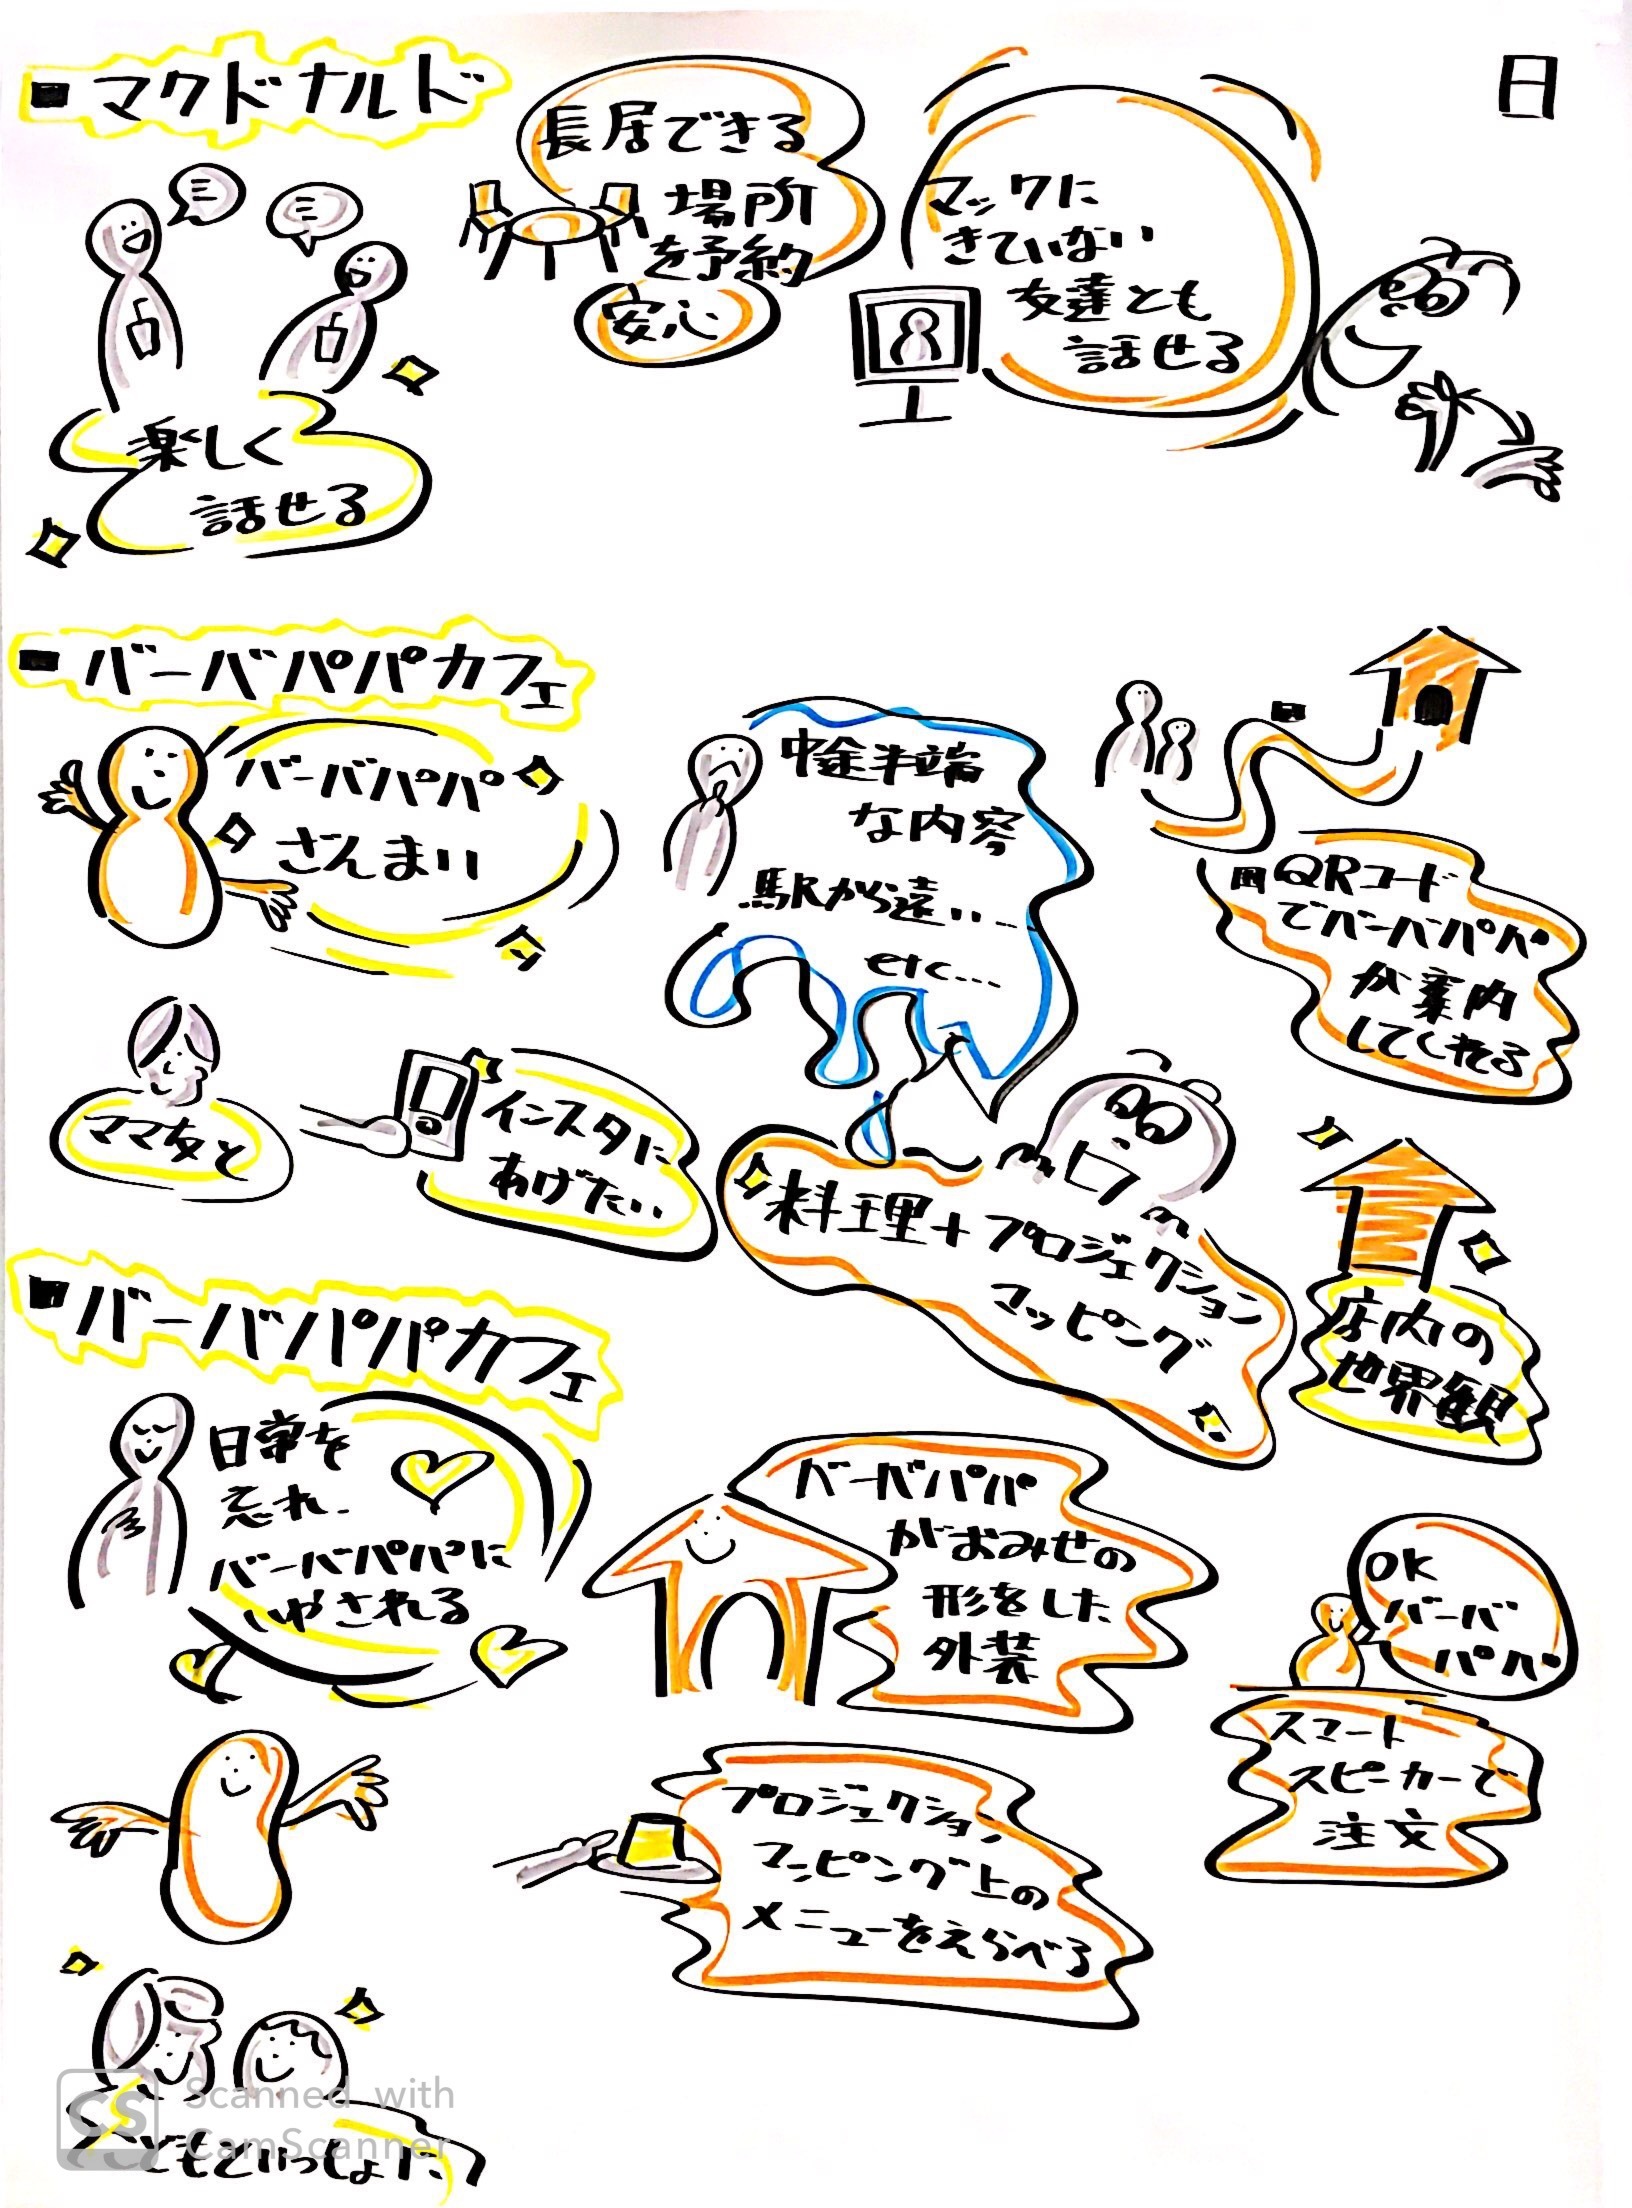 日
■マクドナルド
楽しく
話せる
長居できる
場所
を予約
安心
マックに
きていない
友達とも
話せる
■バーバパパカフェ
バーバパパ
ざんまい
ママ友と
インスタに
あげたい
中途半端
な内容
駅から遠い…
etc…
QRコード
でバーバパパ
が案内
してくれる
料理+プロジェクション
マッピング
店内の
世界観
■バーバパパカフェ
日常を
忘れ、
バーバパパに
いやされる
バーバパパ
がおみせの
形をした
外装
OK
バーバ
パパ
スマート
スピーカーで
注文
プロジェクション
マッピング上の
メニューをえらべる
こどもといっしょに
CS
Scanned with
CamScanner